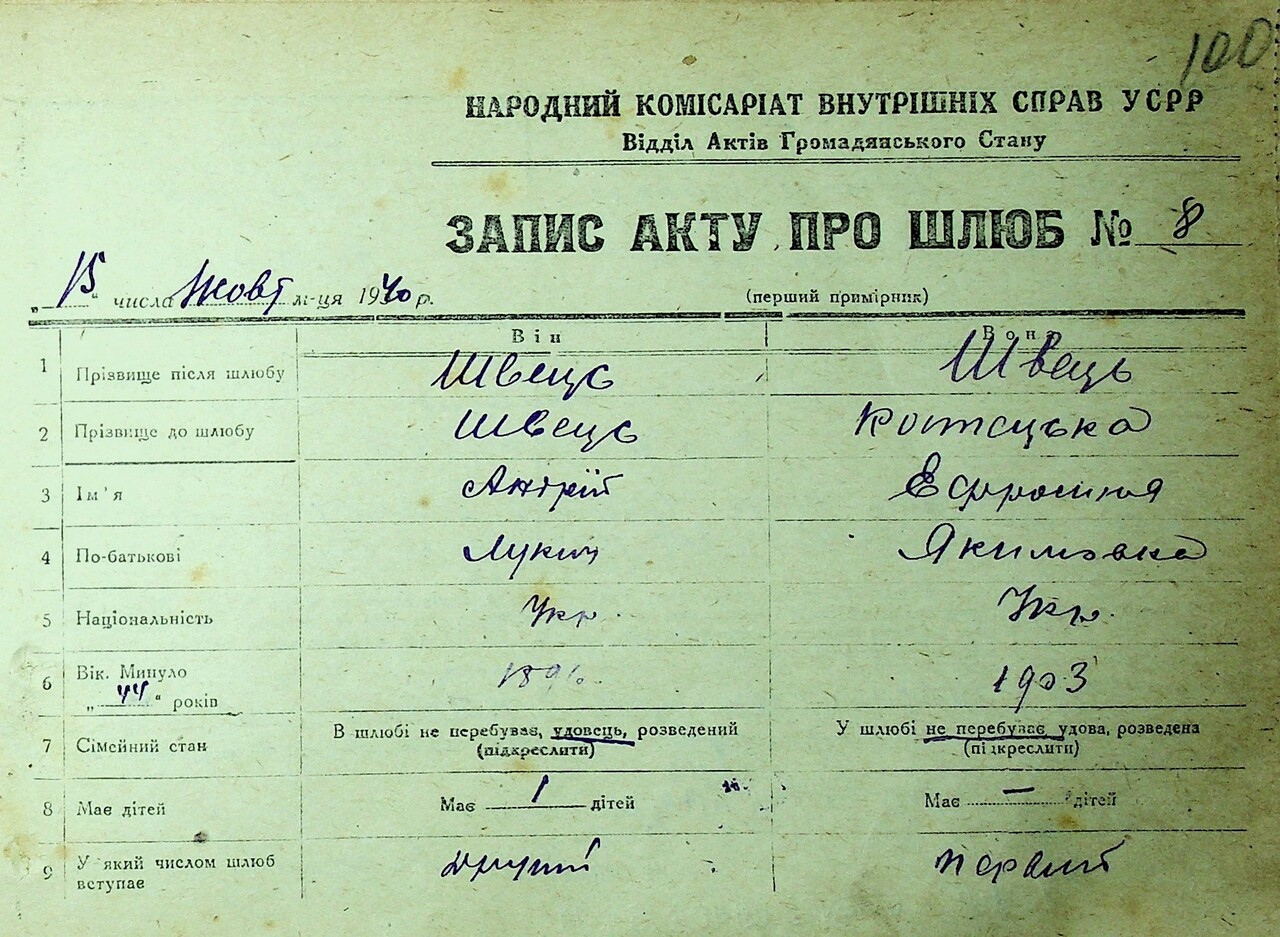 100
НАРОДНИЙ КОМІСАРІАТ ВНУТРІШНІХ СПРАВ УСРР
Відділ Актів Громадянського Стану
ЗАПИС АКТУ ПРО ШЛЮБ № 8
„15“ числа Жовт м-ця 1940 р. (перший примірник)
Він Вона
1 Прізвище після шлюбу Швець Швець
2 Прізвище до шлюбу Швець
3 Ім'я Андрій Ефросинія
4 По-батькові Лукич Якимовна
5 Національність Укр. Укр.
6 Вік. Минуло 1896. 1903
„44“ років
7 Сімейний стан В шлюбі не перебуває, удовець, розведений У шлюбі не перебуває, удова, розведена
(підкреслити) (підкреслити)
8 Має дітей Має 1 дітей Має — дітей
9 У який числом шлюб другий перший
вступає